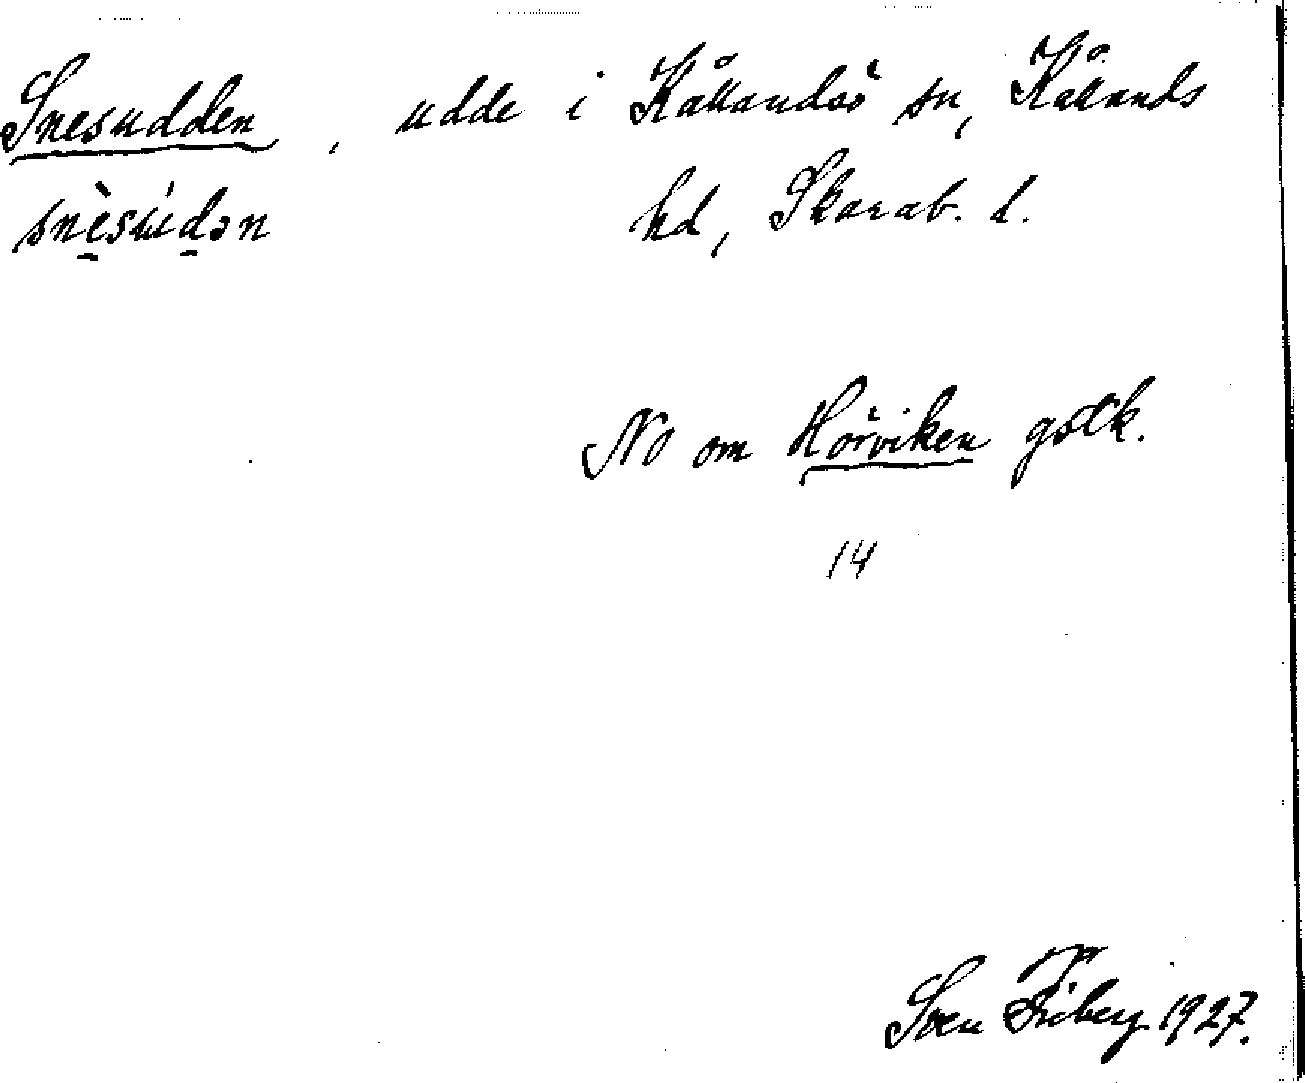 Snesudden, udde i Kållandsö sn, Kållands
snèsúdən hd, Skarab. l.
NO om Hörviken gstk.
14
Sven Friberg 1927.